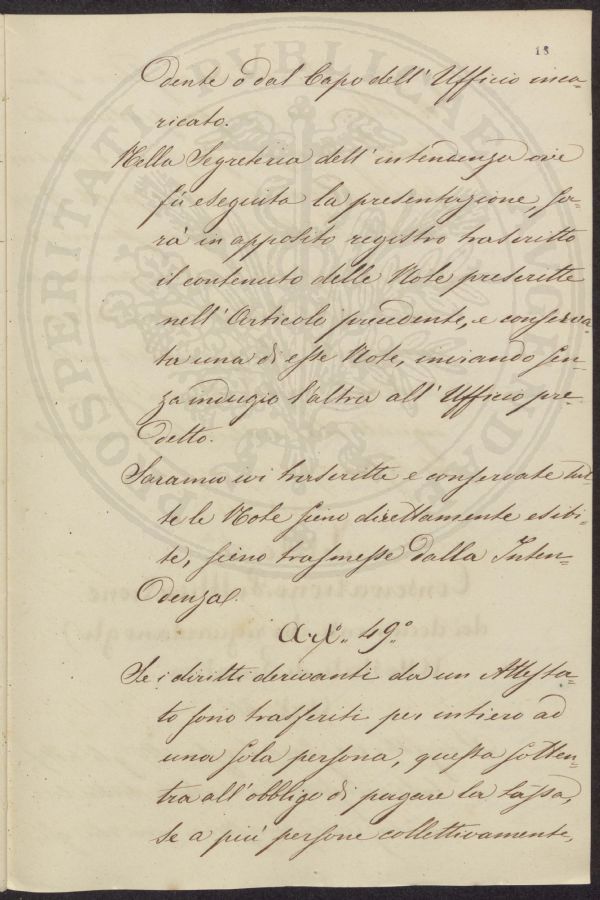 18
dente o dal Capo dell' Ufficio inca=
ricato.
Nella Segreteria dell' intendenza ove
fù eseguita la presentazione, sa=
rà in apposito registro trascritto
il contenuto delle Note prescritte
nell' Articolo precedente, e conserva=
ta una di esse Note, inviando sen=
za indugio l'altra all' Ufficio pre=
detto.
Saranno ivi trascritte e conservate tut=
te le Note sieno direttamente esibi=
te, sieno trasmesse dalla Inten=
denza.
Art.° 49.°
Se i diritti derivanti da un Attesta=
to sono trasferiti per intiero ad
una sola persona, questa sotten=
tra all'obbligo di pagare la tassa,
se a più persone collettivamente,
PROSPERITATI PVBLICAE